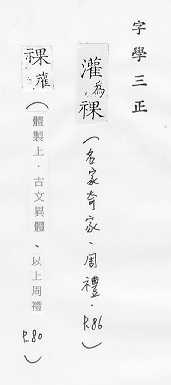 字學三正
灌為祼(名家奇家、周禮.P.86
祼灌(體製上.古文異體、以上周禮P.80)